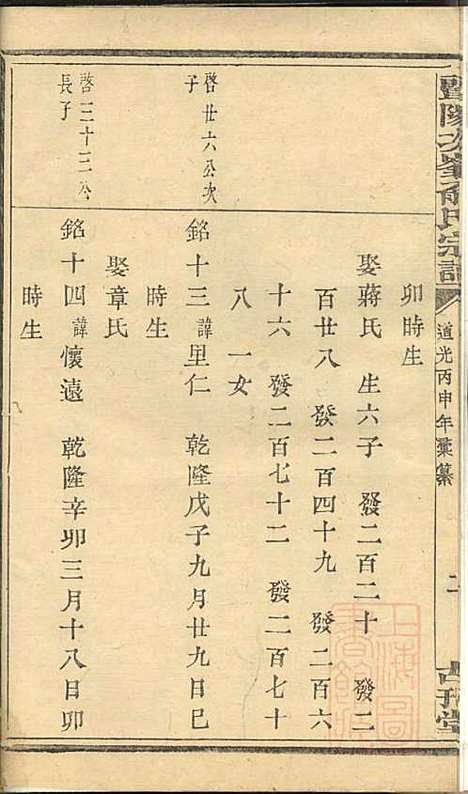 暨陽次峯俞氏宗譜 道光丙申年彙纂 二 堂
卯時生
娶蔣氏 生六子 發二百二十 發二
百廿八 發二百四十九 發二百六
十六 發二百七十二 發二百七十
八 一女
啓廿六公次
子
銘十三諱里仁 乾隆戊子九月廿九日巳
時生
娶章氏
啓三十三公
長子
銘十四諱懷遠 乾隆辛卯三月十八日卯
時生
上海圖
書館